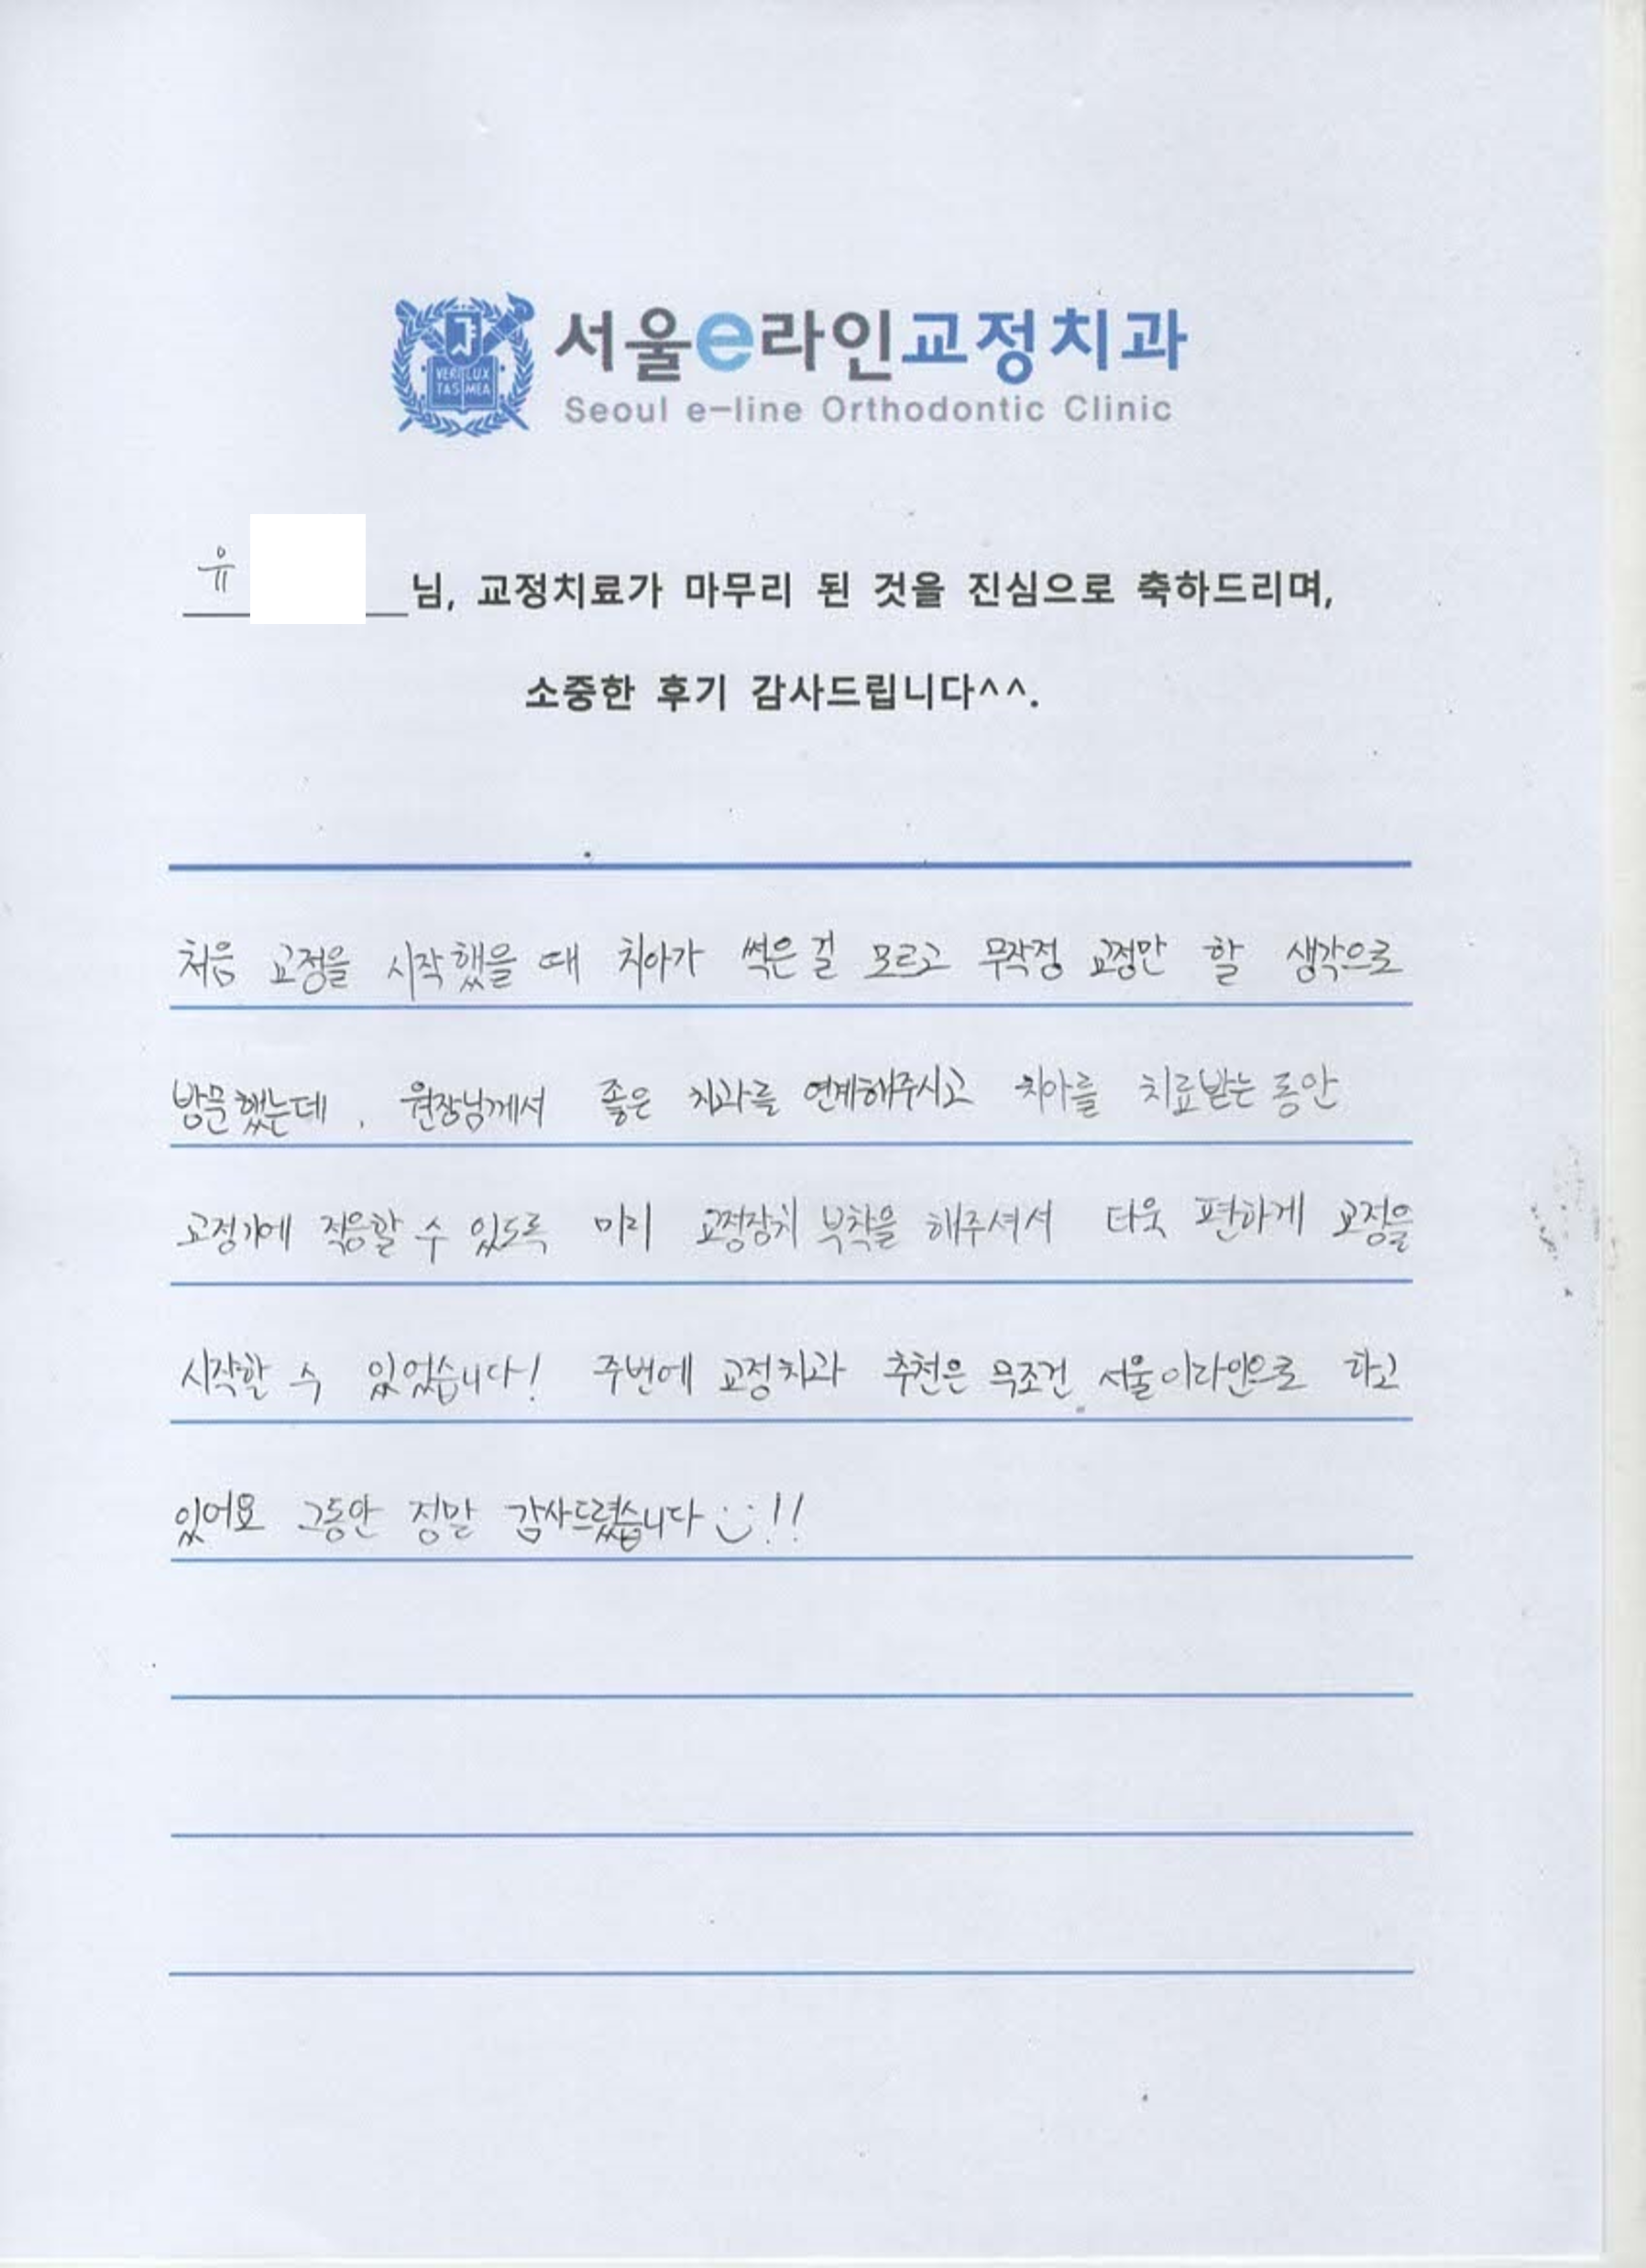 서울e라인교정치과
VERI LUX
TAS MEA
Seoul e-line Orthodontic Clinic
유 님, 교정치료가 마무리 된 것을 진심으로 축하드리며,
소중한 후기 감사드립니다^^.
처음 교정을 시작했을 때 치아가 썩은 걸 모르고 무작정 교정만 할 생각으로
방문했는데, 원장님께서 좋은 치과를 연계해주시고 치아를 치료받는 동안
교정기에 적응할 수 있도록 미리 교정장치 부착을 해주셔서 더욱 편하게 교정을
시작할 수 있었습니다! 주변에 교정치과 추천은 무조건 서울이라인으로 하고
있어요 그동안 정말 감사드렸습니다 !!